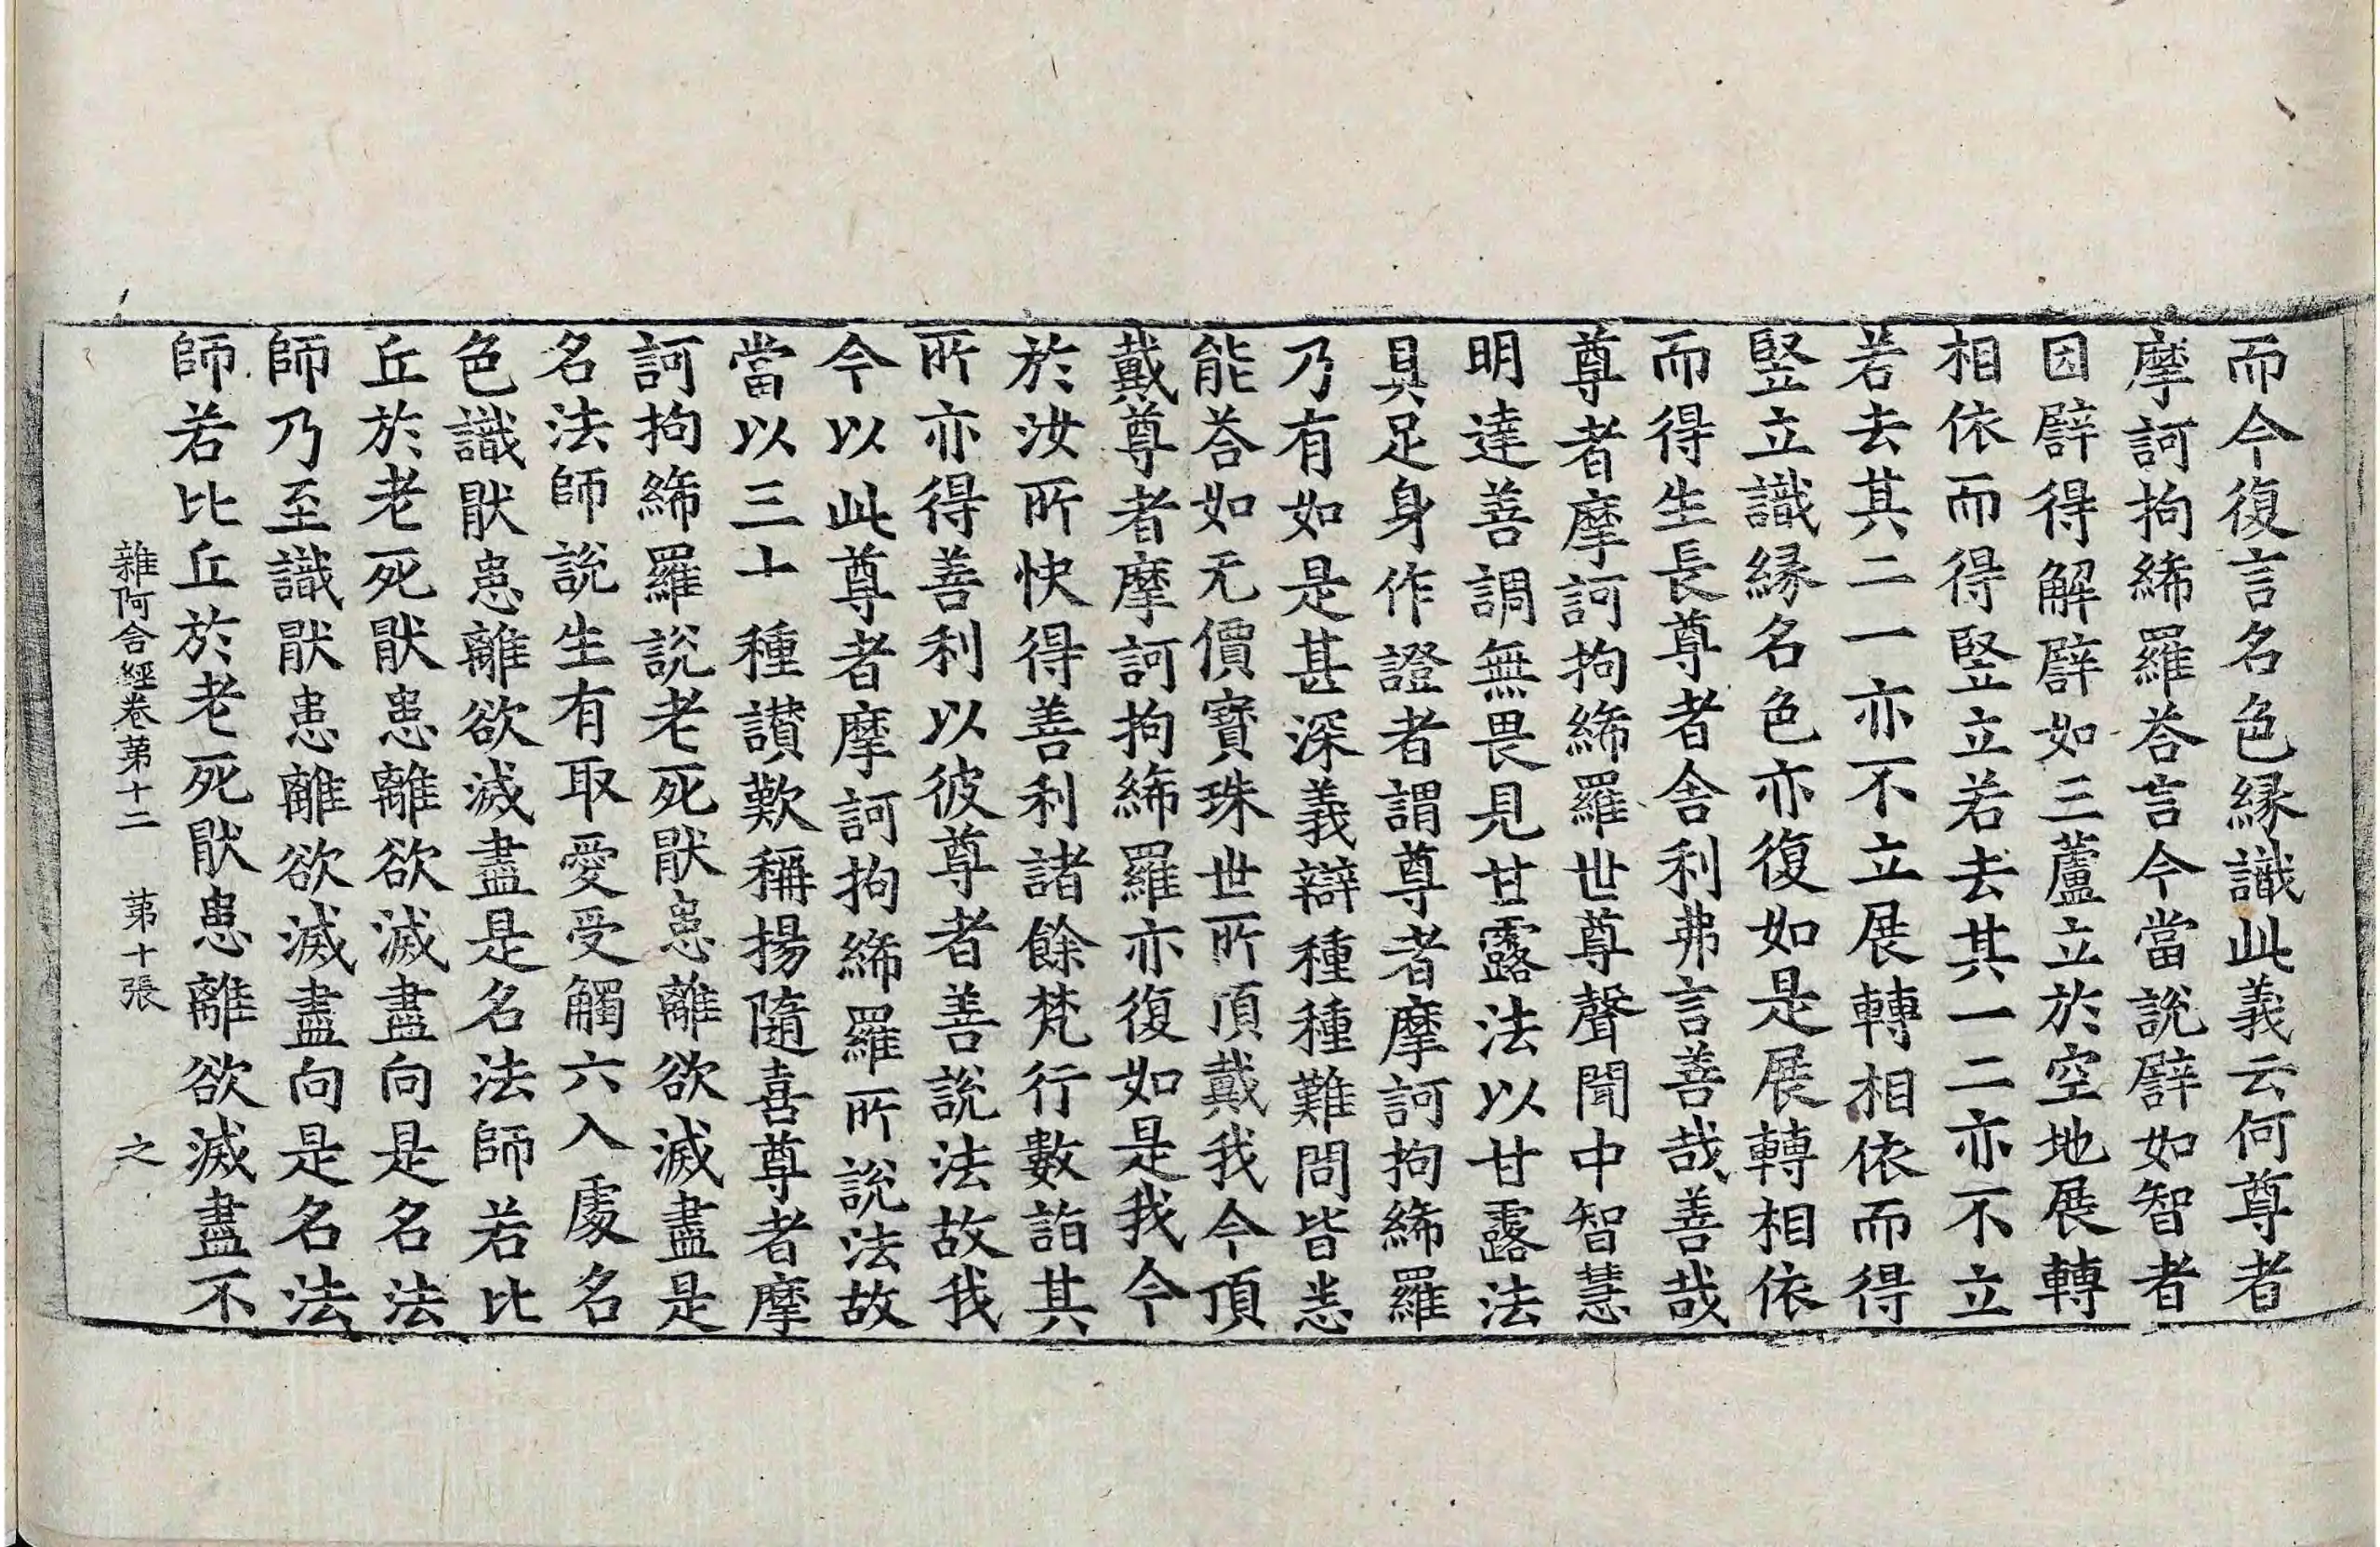 而今復言名色縁識此義云何尊者
摩訶拘絺羅荅言今當說譬如智者
因譬得解譬如三蘆立於空地展轉
相依而得竪立若去其一二亦不立
若去其二一亦不立展轉相依而得
竪立識縁名色亦復如是展轉相依
而得生長尊者舎利弗言善哉善哉
尊者摩訶拘絺羅世尊聲聞中智慧
明達善調無畏見甘露法以甘露法
具足身作證者謂尊者摩訶拘絺羅
乃有如是甚深義辯種種難問皆悉
能荅如无價寶珠世所頂戴我今頂
戴尊者摩訶拘絺羅亦復如是我今
於汝所快得善利諸餘梵行數詣其
所亦得善利以彼尊者善說法故我
今以此尊者摩訶拘絺羅所說法故
當以三十種讃歎稱揚隨喜尊者摩
訶拘絺羅說老死猒患離欲滅盡是
名法師說生有取愛受觸六入處名
色識猒患離欲滅盡是名法師若比
丘於老死猒患離欲滅盡向是名法
師乃至識猒患離欲滅盡向是名法
師若比丘於老死猒患離欲滅盡不
雜阿含經卷第十二　第十張　之